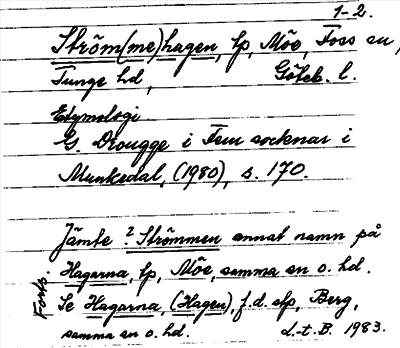 1-2.
Ström(me)hagen, tp, Möe, Foss sn,
Tunge hd, Göteb. l.
Etymologi
G. Drougge i Fem socknar i
Munkedal, (1980), s. 170.
Jämte ? Strömmen annat namn på
Hagarna, tp, Möe, samma sn o. hd.
Se Hagarna, (Hagen), f.d. stp, Berg,
samma sn o. hd. L-t. B. 1983.
Forts.